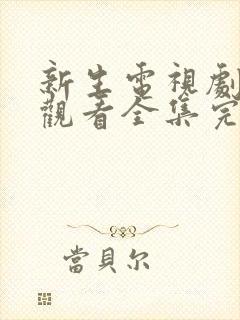 新生電視劇
觀看全集完
當貝尔